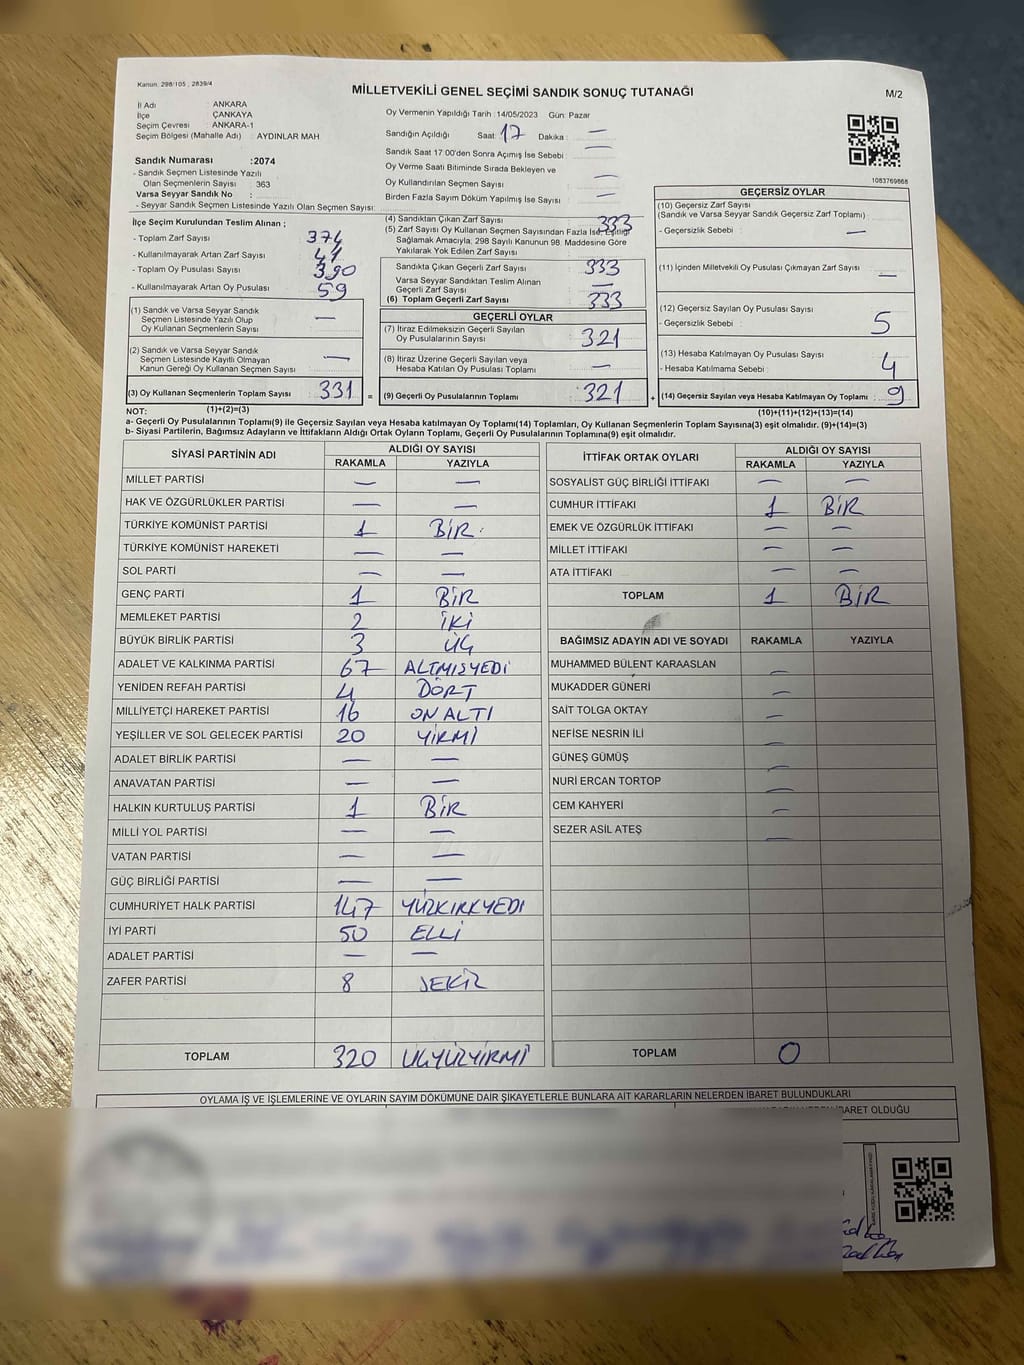 Kanun, 298/105 , 2839/4
MİLLETVEKİLİ GENEL SEÇİMİ SANDIK SONUÇ TUTANAĞI
M/2
İl Adı : ANKARA
İlçe : ÇANKAYA
Seçim Çevresi : ANKARA-1
Seçim Bölgesi (Mahalle Adı) : AYDINLAR MAH
Oy Vermenin Yapıldığı Tarih : 14/05/2023 Gün: Pazar
Sandığın Açıldığı Saat: 17 Dakika: —
Sandık Saat 17:00'den Sonra Açımış İse Sebebi : —
Oy Verme Saati Bitiminde Sırada Bekleyen ve
Oy Kullandırılan Seçmen Sayısı : —
Birden Fazla Sayım Döküm Yapılmış İse Sayısı : —
1083769868
Sandık Numarası :2074
- Sandık Seçmen Listesinde Yazılı
Olan Seçmenlerin Sayısı : 363
Varsa Seyyar Sandık No :
- Seyyar Sandık Seçmen Listesinde Yazılı Olan Seçmen Sayısı:
İlçe Seçim Kurulundan Teslim Alınan ;
- Toplam Zarf Sayısı : 374
- Kullanılmayarak Artan Zarf Sayısı : 41
- Toplam Oy Pusulası Sayısı : 390
- Kullanılmayarak Artan Oy Pusulası : 59
(1) Sandık ve Varsa Seyyar Sandık
Seçmen Listesinde Yazılı Olup
Oy Kullanan Seçmenlerin Sayısı : —
(2) Sandık ve Varsa Seyyar Sandık
Seçmen Listesinde Kayıtlı Olmayan
Kanun Gereği Oy Kullanan Seçmen Sayısı : —
(3) Oy Kullanan Seçmenlerin Toplam Sayısı : 331
(1)+(2)=(3)
(4) Sandıktan Çıkan Zarf Sayısı : 333
(5) Zarf Sayısı Oy Kullanan Seçmen Sayısından Fazla İse, Eşitliği
Sağlamak Amacıyla, 298 Sayılı Kanunun 98. Maddesine Göre
Yakılarak Yok Edilen Zarf Sayısı :
Sandıkta Çıkan Geçerli Zarf Sayısı : 333
Varsa Seyyar Sandıktan Teslim Alınan
Geçerli Zarf Sayısı : —
(6) Toplam Geçerli Zarf Sayısı : 333
GEÇERLİ OYLAR
(7) İtiraz Edilmeksizin Geçerli Sayılan
Oy Pusulalarının Sayısı : 321
(8) İtiraz Üzerine Geçerli Sayılan veya
Hesaba Katılan Oy Pusulası Toplamı : —
= (9) Geçerli Oy Pusulalarının Toplamı : 321
GEÇERSİZ OYLAR
(10) Geçersiz Zarf Sayısı
(Sandık ve Varsa Seyyar Sandık Geçersiz Zarf Toplamı) :
- Geçersizlik Sebebi : —
(11) İçinden Milletvekili Oy Pusulası Çıkmayan Zarf Sayısı : —
(12) Geçersiz Sayılan Oy Pusulası Sayısı : 5
- Geçersizlik Sebebi :
(13) Hesaba Katılmayan Oy Pusulası Sayısı : 4
- Hesaba Katılmama Sebebi :
+ (14) Geçersiz Sayılan veya Hesaba Katılmayan Oy Toplamı : 9
(10)+(11)+(12)+(13)=(14)
NOT:
a- Geçerli Oy Pusulalarının Toplamı(9) ile Geçersiz Sayılan veya Hesaba katılmayan Oy Toplamı(14) Toplamları, Oy Kullanan Seçmenlerin Toplam Sayısına(3) eşit olmalıdır. (9)+(14)=(3)
b- Siyasi Partilerin, Bağımsız Adayların ve İttifakların Aldığı Ortak Oyların Toplamı, Geçerli Oy Pusulalarının Toplamına(9) eşit olmalıdır.
SİYASİ PARTİNİN ADI ALDIĞI OY SAYISI
RAKAMLA YAZIYLA
MİLLET PARTİSİ — —
HAK VE ÖZGÜRLÜKLER PARTİSİ — —
TÜRKİYE KOMÜNİST PARTİSİ 1 BİR
TÜRKİYE KOMÜNİST HAREKETİ — —
SOL PARTİ — —
GENÇ PARTİ 1 BİR
MEMLEKET PARTİSİ 2 İKİ
BÜYÜK BİRLİK PARTİSİ 3 ÜÇ
ADALET VE KALKINMA PARTİSİ 67 ALTMIŞYEDİ
YENİDEN REFAH PARTİSİ 4 DÖRT
MİLLİYETÇİ HAREKET PARTİSİ 16 ON ALTI
YEŞİLLER VE SOL GELECEK PARTİSİ 20 YİRMİ
ADALET BİRLİK PARTİSİ — —
ANAVATAN PARTİSİ — —
HALKIN KURTULUŞ PARTİSİ 1 BİR
MİLLİ YOL PARTİSİ — —
VATAN PARTİSİ — —
GÜÇ BİRLİĞİ PARTİSİ — —
CUMHURİYET HALK PARTİSİ 147 YÜZKIRKYEDI
İYİ PARTİ 50 ELLİ
ADALET PARTİSİ — —
ZAFER PARTİSİ 8 SEKİZ
TOPLAM 320 ÜÇYÜZYİRMİ
İTTİFAK ORTAK OYLARI ALDIĞI OY SAYISI
RAKAMLA YAZIYLA
SOSYALİST GÜÇ BİRLİĞİ İTTİFAKI — —
CUMHUR İTTİFAKI 1 BİR
EMEK VE ÖZGÜRLÜK İTTİFAKI — —
MİLLET İTTİFAKI — —
ATA İTTİFAKI — —
TOPLAM 1 BİR
BAĞIMSIZ ADAYIN ADI VE SOYADI RAKAMLA YAZIYLA
MUHAMMED BÜLENT KARAASLAN —
MUKADDER GÜNERİ —
SAİT TOLGA OKTAY —
NEFİSE NESRİN İLİ —
GÜNEŞ GÜMÜŞ —
NURİ ERCAN TORTOP —
CEM KAHYERİ —
SEZER ASİL ATEŞ —
TOPLAM 0
OYLAMA İŞ VE İŞLEMLERİNE VE OYLARIN SAYIM DÖKÜMÜNE DAİR ŞİKAYETLERLE BUNLARA AİT KARARLARIN NELERDEN İBARET BULUNDUKLARI
İBARET OLDUĞU